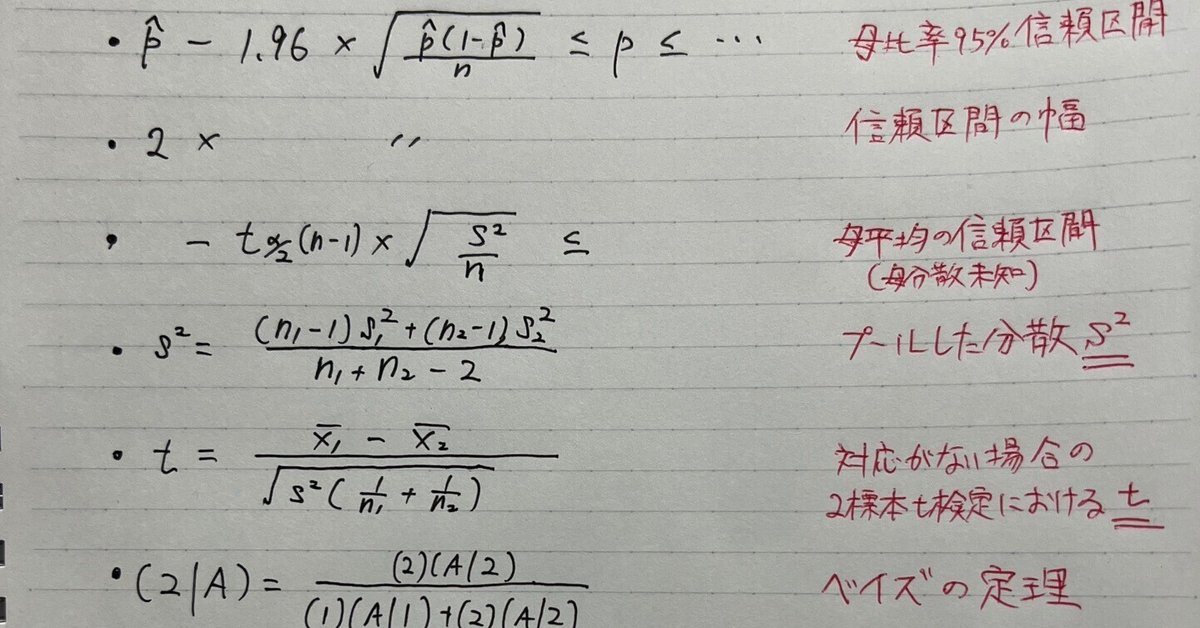 • p̂ - 1.96 × √(p̂(1-p̂)/n) ≤ p ≤ … 母比率95%信頼区間
• 2 × 〃 信頼区間の幅
• - t α/2 (n-1) × √(s²/n) ≤ 母平均の信頼区間
(母分散未知)
• s² = ((n₁-1)s₁²+(n₂-1)s₂²)/(n₁+n₂-2) プールした分散 s²
• t = (x̄₁ - x̄₂)/√(s²(1/n₁ + 1/n₂)) 対応がない場合の
2標本t検定における t
• (2|A) = (2)(A|2)/((1)(A|1)+(2)(A|2)) ベイズの定理